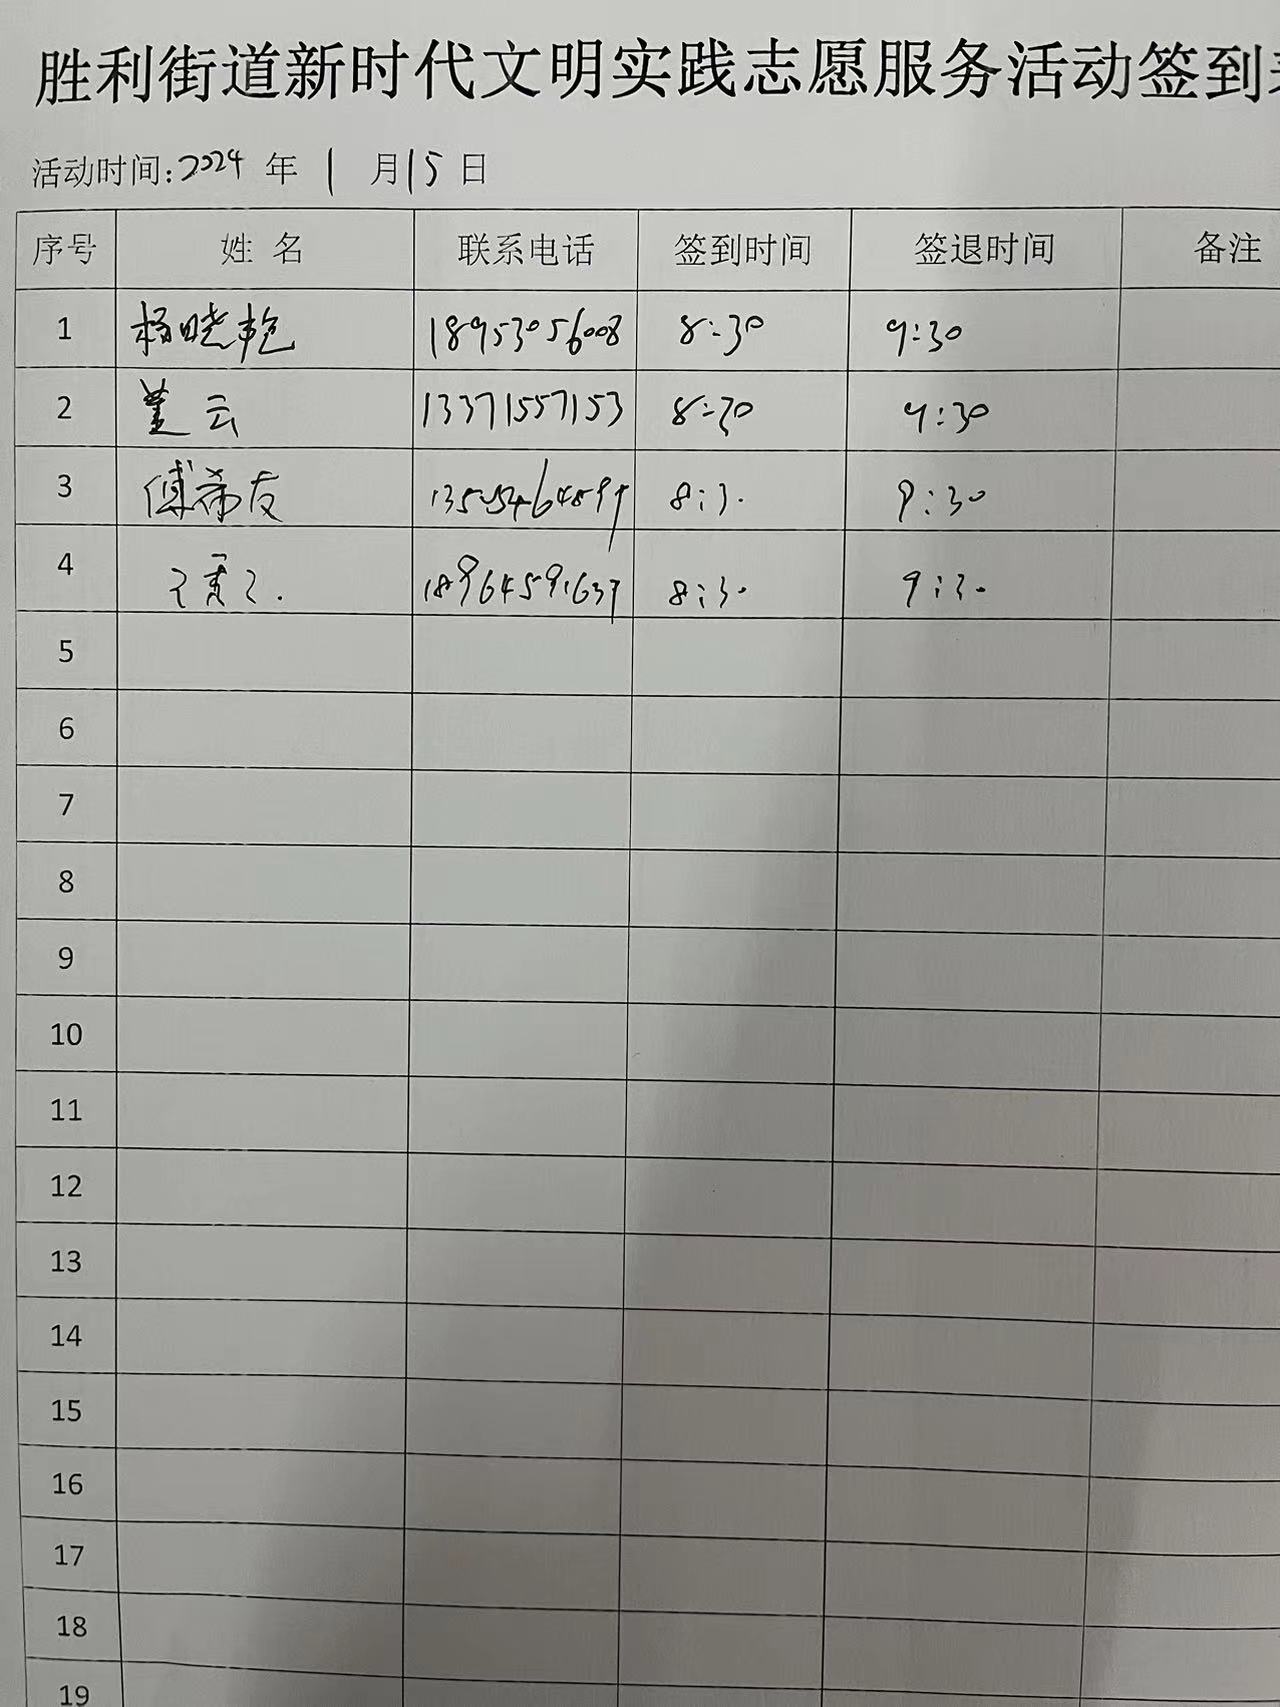 胜利街道新时代文明实践志愿服务活动签到
活动时间:2024 年 1 月15 日
序号 姓 名 联系电话 签到时间 签退时间 备注
1 杨晓艳 18953056008 8:30 9:30
2 云 13371557153 8:30 9:30
3 傅希友 8:30 9:30
4 8:30 9:30
5
6
7
8
9
10
11
12
13
14
15
16
17
18
19